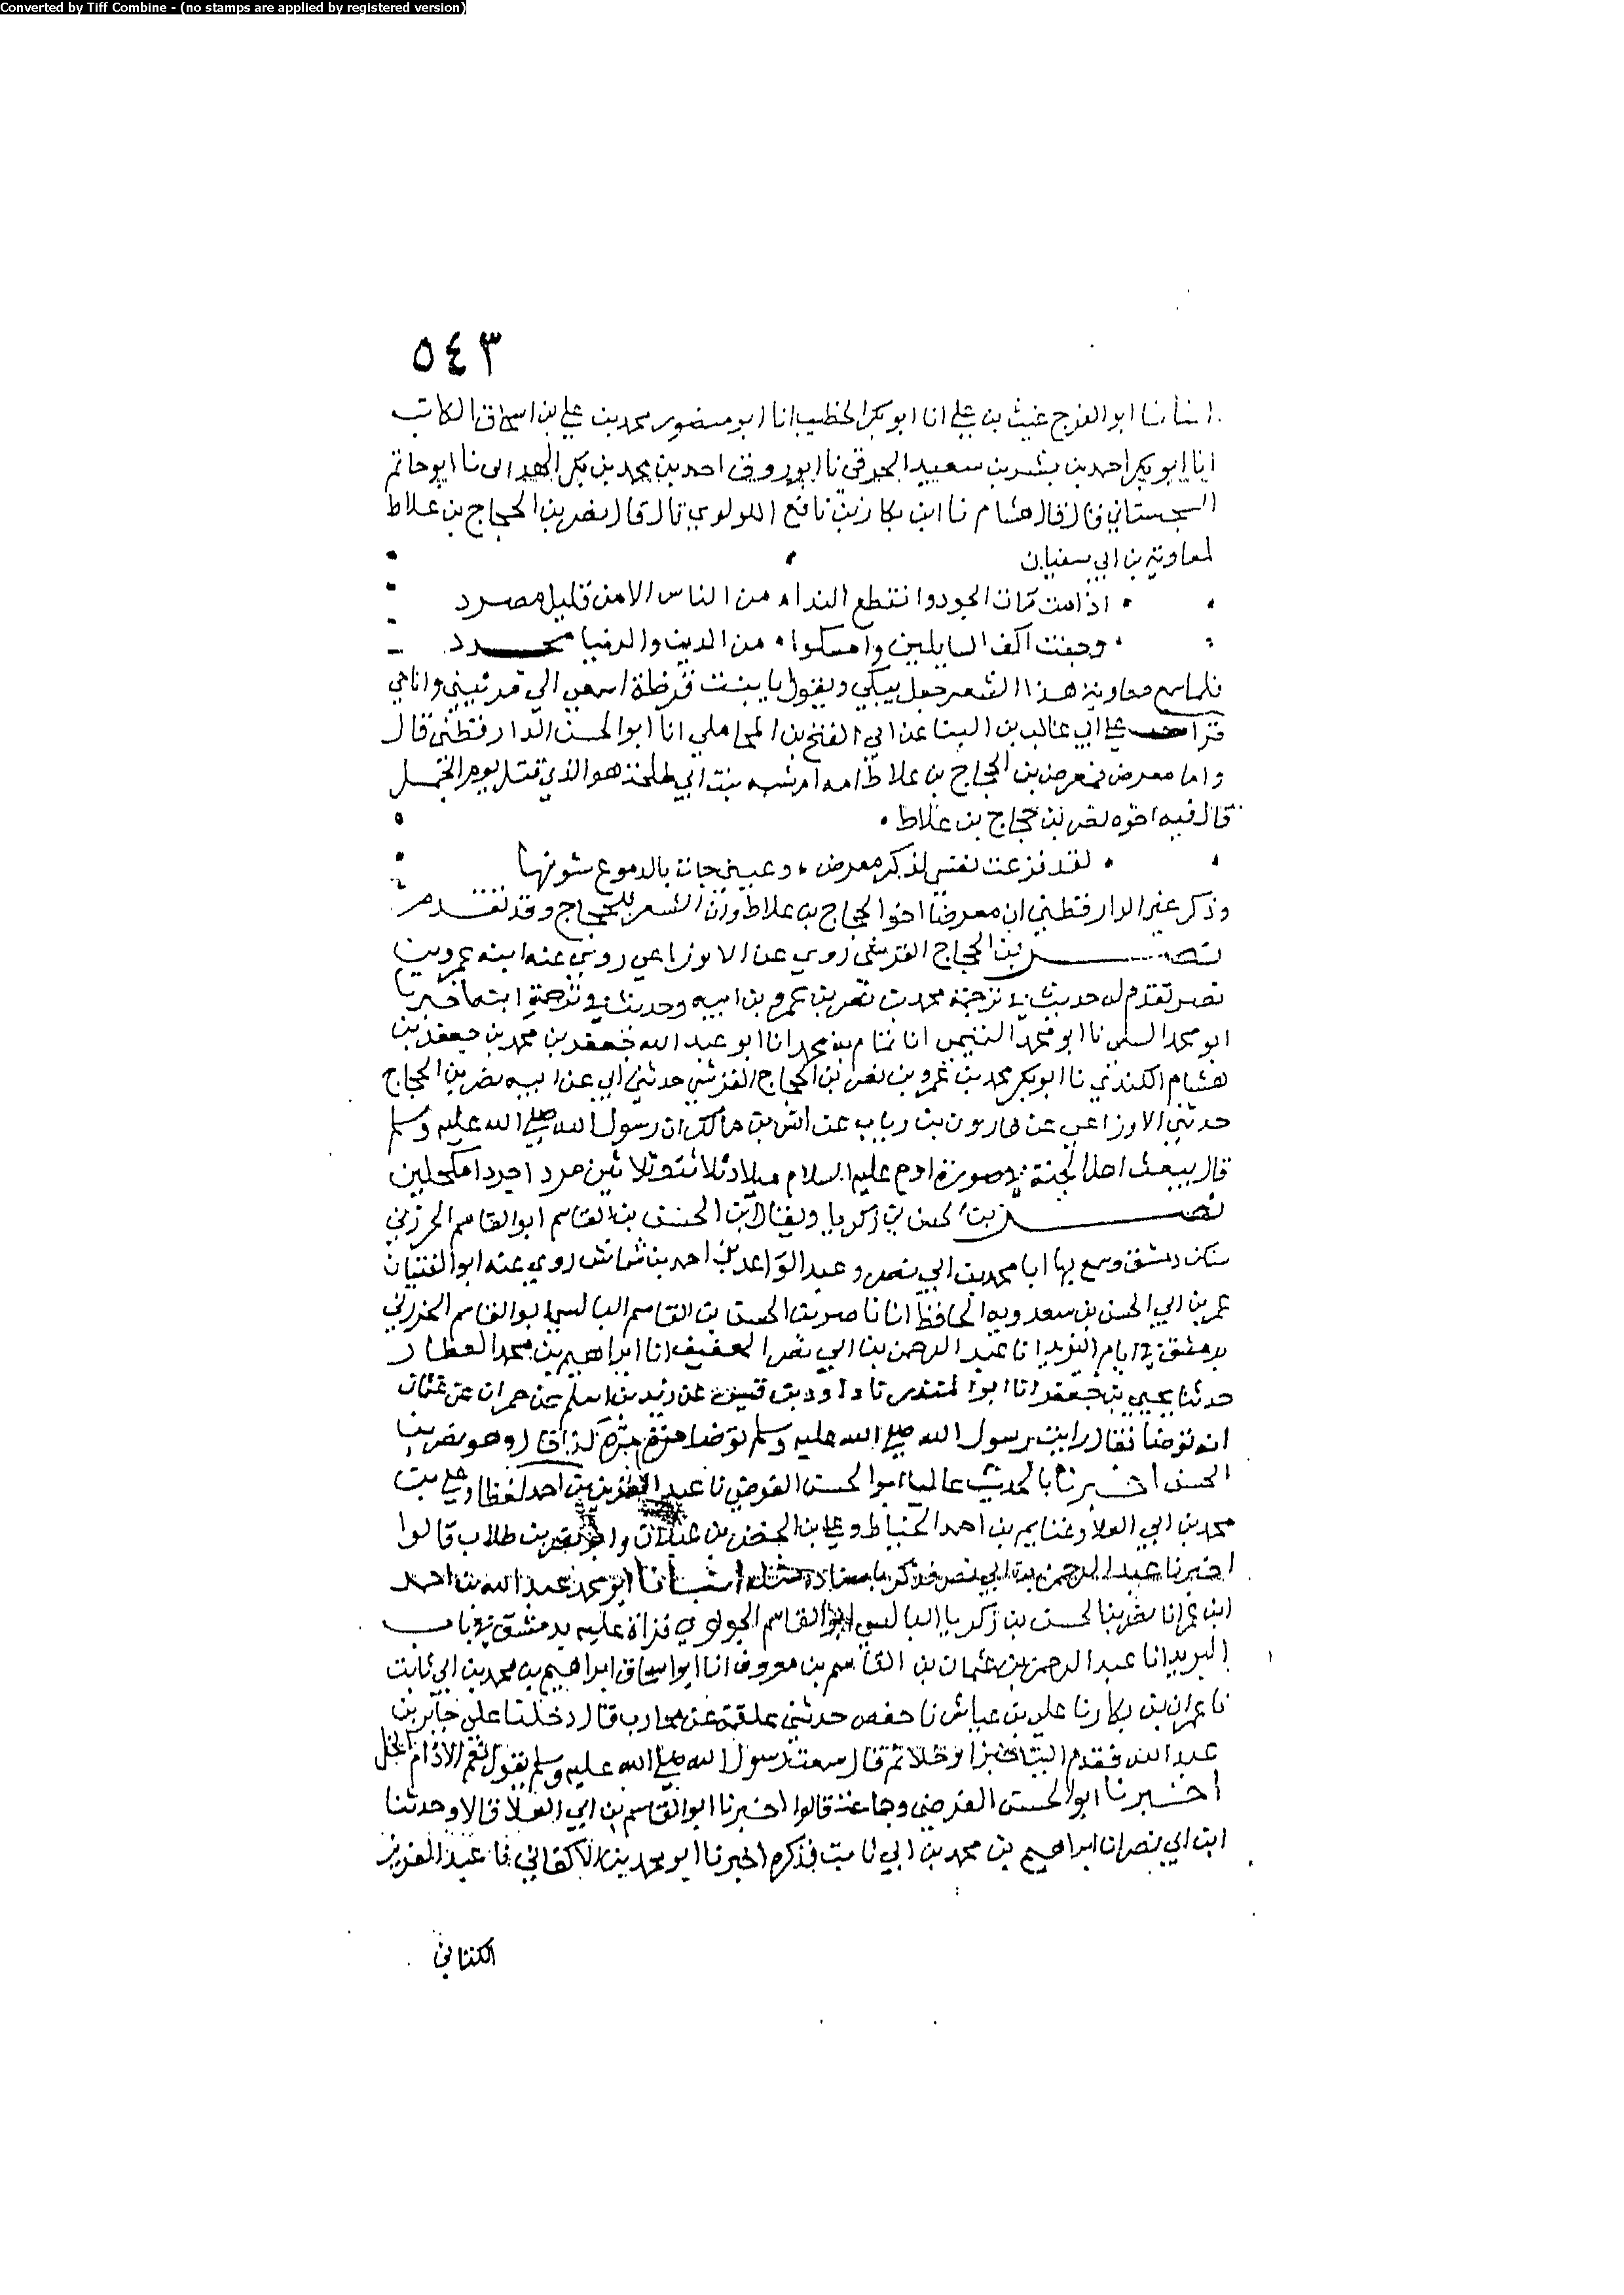 Converted by Tiff Combine - (no stamps are applied by registered version)
٥٤٣
انبانا ابو الفرج غيث بن علي انا ابو بكر الخطيب انا ابو منصور محمد بن علي بن اسحاق الكاتب
انا ابو بكر احمد بن بشر بن سعيد الخرقي نا ابو روق احمد بن محمد بن بكر الهزاني نا ابو حاتم
السجستاني قال قال هشام نا ابن بكار نافع اللولوي قال قال نصر بن الحجاج بن علاط
لمعاوية بن ابي سفيان
اذا مت مات الجود وانقطع الندا من الناس الا من قليل مصرد
وجفت اكف السايلين وامسكوا من الدين والدنيا مجدد
فلما سمع معاوية هذا الشعر جعل يبكي ويقول يا بنت قرظة اسمعي الي مرثيتي وانا حي
قرات علي ابي غالب بن البنا عن ابي الفتح بن المحاملي انا ابو الحسن الدارقطني قال
واما معرض فمعرض بن الحجاج بن علاط امه ام شيبه بنت ابي طلحة هو الذي قتل يوم الجمل
قال فيه اخوه نصر بن حجاج بن علاط
لقد فزعت نفسي لذكر معرض وعيني جات بالدموع شونها
وذكر غير الدارقطني ان معرضا اخو الحجاج بن علاط وان الشعر للحجاج وقد تقدم
نصر بن الحجاج القرشي روي عن الاوزاعي روي عنه ابنه عمرو بن
نصر تقدم له حديث في ترجمة محمد بن نصر بن عمرو بن ابيه وحديث في ترجمة ابنه اخبرنا
ابو محمد السلمي نا ابو محمد التميمي انا تمام بن محمد انا ابو عبد الله جعفر بن محمد بن جعفر بن
هشام الكندي نا ابو بكر محمد بن عمرو بن نصر بن الحجاج القرشي حدثني ابي عن ابيه نصر بن الحجاج
حدثني الاوزاعي عن هارون بن رياب عن انس بن مالك ان رسول الله صلي الله عليه وسلم
قال يبعث اهل الجنة في صورة ادم عليه السلام ميلاد ثلاثة وثلاثين مرد اجردا مكحلين
نصر بن الحسن بن زكريا ويقال ابن الحسن بن القاسم ابو القاسم
سكن دمشق وسمع بها ابا محمد بن ابي نصر و عبد الواحد بن احمد بن شماش روي عنه ابو الفتيان
عمر بن ابي الحسن بن سعدويه الحافظ انا ناصر بن الحسن بن القاسم البالسي ابو القاسم
بدمشق انا عبد الرحمن بن ابي نصر العفيف انا ابراهيم بن محمد العطار
حدثنا يحيي بن جعفر انا ابو المنذر نا داود بن قيس عن زيد بن اسلم عن حمران عن عثمان
انه توضا فقال رايت رسول الله صلي الله عليه وسلم توضا كذا قال وهو نصر بن
الحسن اخبرنا بالحديث عاليا ابو الحسن الفرضي نا عبد العزيز بن احمد لفظا وعلي بن
محمد بن ابي العلا وغنايم بن احمد الخياط وعلي بن الخضر بن عبدان وابو نصر بن طلاب قالوا
اخبرنا عبد الرحمن بن ابي نصر فذكر باسناده مثله انبانا ابو محمد عبد الله بن احمد
ابن عمر انا نصر بن الحسن بن زكريا البالسي ابو القاسم قراة عليه بدمشق في باب
البريد انا عبد الرحمن بن عثمان بن القاسم بن معروف انا ابو اسحاق ابراهيم بن محمد بن ابي ثابت
نا عمران بن بكار نا علي بن عياش نا حفص حدثني علقمة عن محارب قال دخلنا علي جابر بن
عبد الله فقدم الينا خبزا وخلا ثم قال سمعت رسول الله صلي الله عليه وسلم يقول نعم الادام الخل
اخبرنا ابو الحسن الفرضي وجماعة قالوا اخبرنا ابو القاسم بن ابي العلا قالا وحدثنا
ابن ابي نصر انا ابراهيم بن محمد بن ابي ثابت فذكره اخبرنا ابو محمد بن الاكفاني نا عبد العزيز
الكتاني